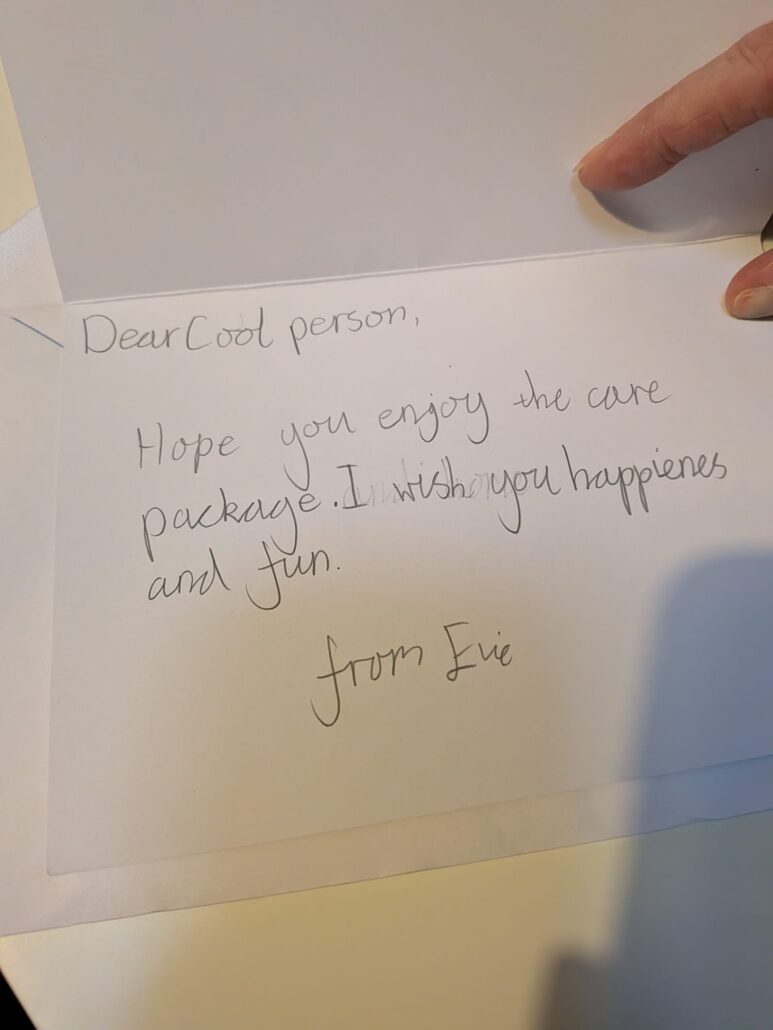 Dear Cool person,
Hope you enjoy the care
package. I wish you happienes
and fun.
from Evie